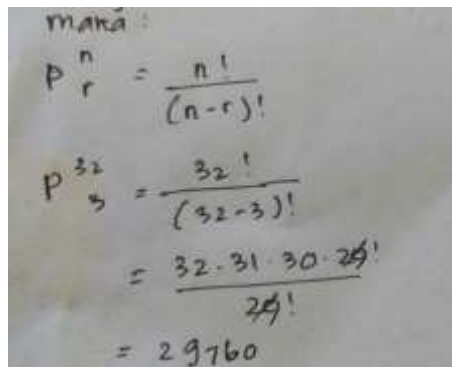 maka :
P n r = n! / (n-r)!
P 32 3 = 32! / (32-3)!
= 32 . 31 . 30 . 29! / 29!
= 29760